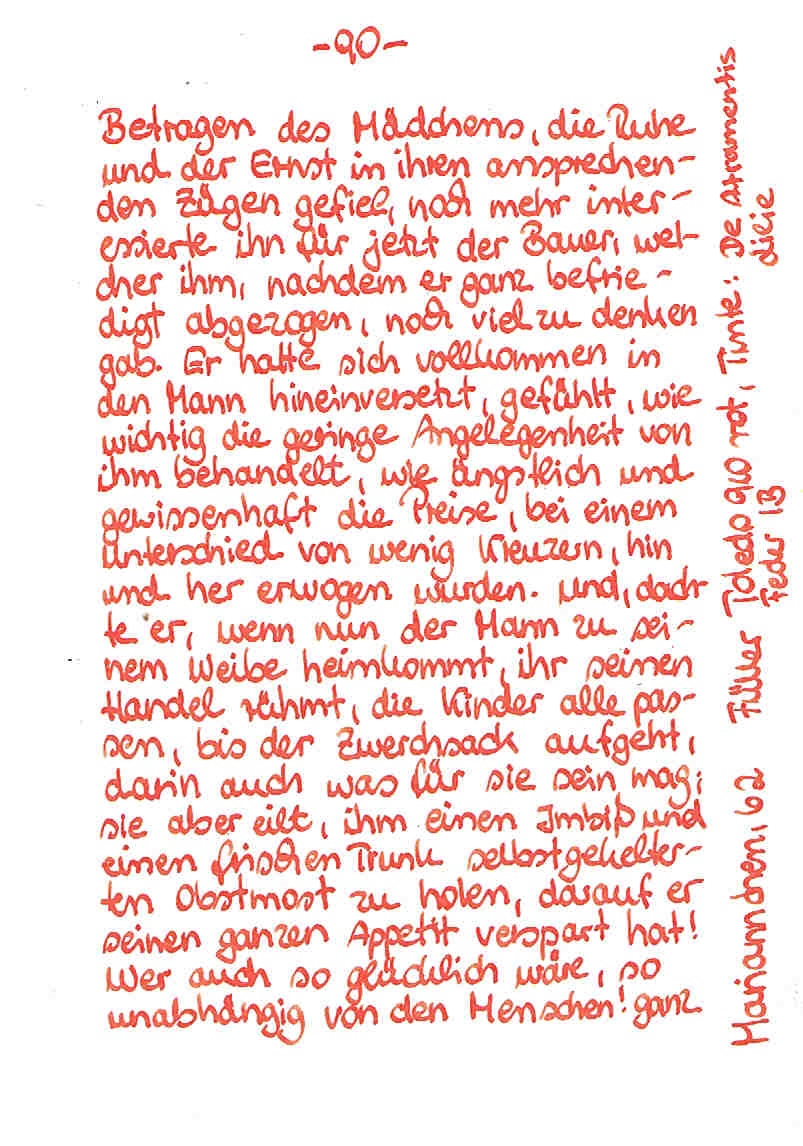 -90-
Betragen des Mädchens, die Ruhe
und der Ernst in ihren ansprechen-
den Zügen gefiel, noch mehr inter-
essierte ihn für jetzt der Bauer, wel-
cher ihm, nachdem er ganz befrie-
digt abgezogen, noch viel zu denken
gab. Er hatte sich vollkommen in
den Mann hineinversetzt, gefühlt, wie
wichtig die geringe Angelegenheit von
ihm behandelt, wie ängstlich und
gewissenhaft die Preise, bei einem
Unterschied von wenig Kreuzern, hin
und her erwogen wurden. Und, dach-
te er, wenn nun der Mann zu sei-
nem Weibe heimkommt, ihr seinen
Handel rühmt, die Kinder alle pas-
sen, bis der Zwerchsack aufgeht,
darin auch was für sie sein mag;
sie aber eilt, ihm einen Imbiß und
einen frischen Trunk selbstgekelter-
ten Obstmost zu holen, darauf er
seinen ganzen Appetit verspart hat!
Wer auch so glücklich wäre, so
unabhängig von den Menschen! ganz
Mariannchen, 62 Füller Toledo 910 rot, Tinte: De Atramentis
Feder 13 Lilie